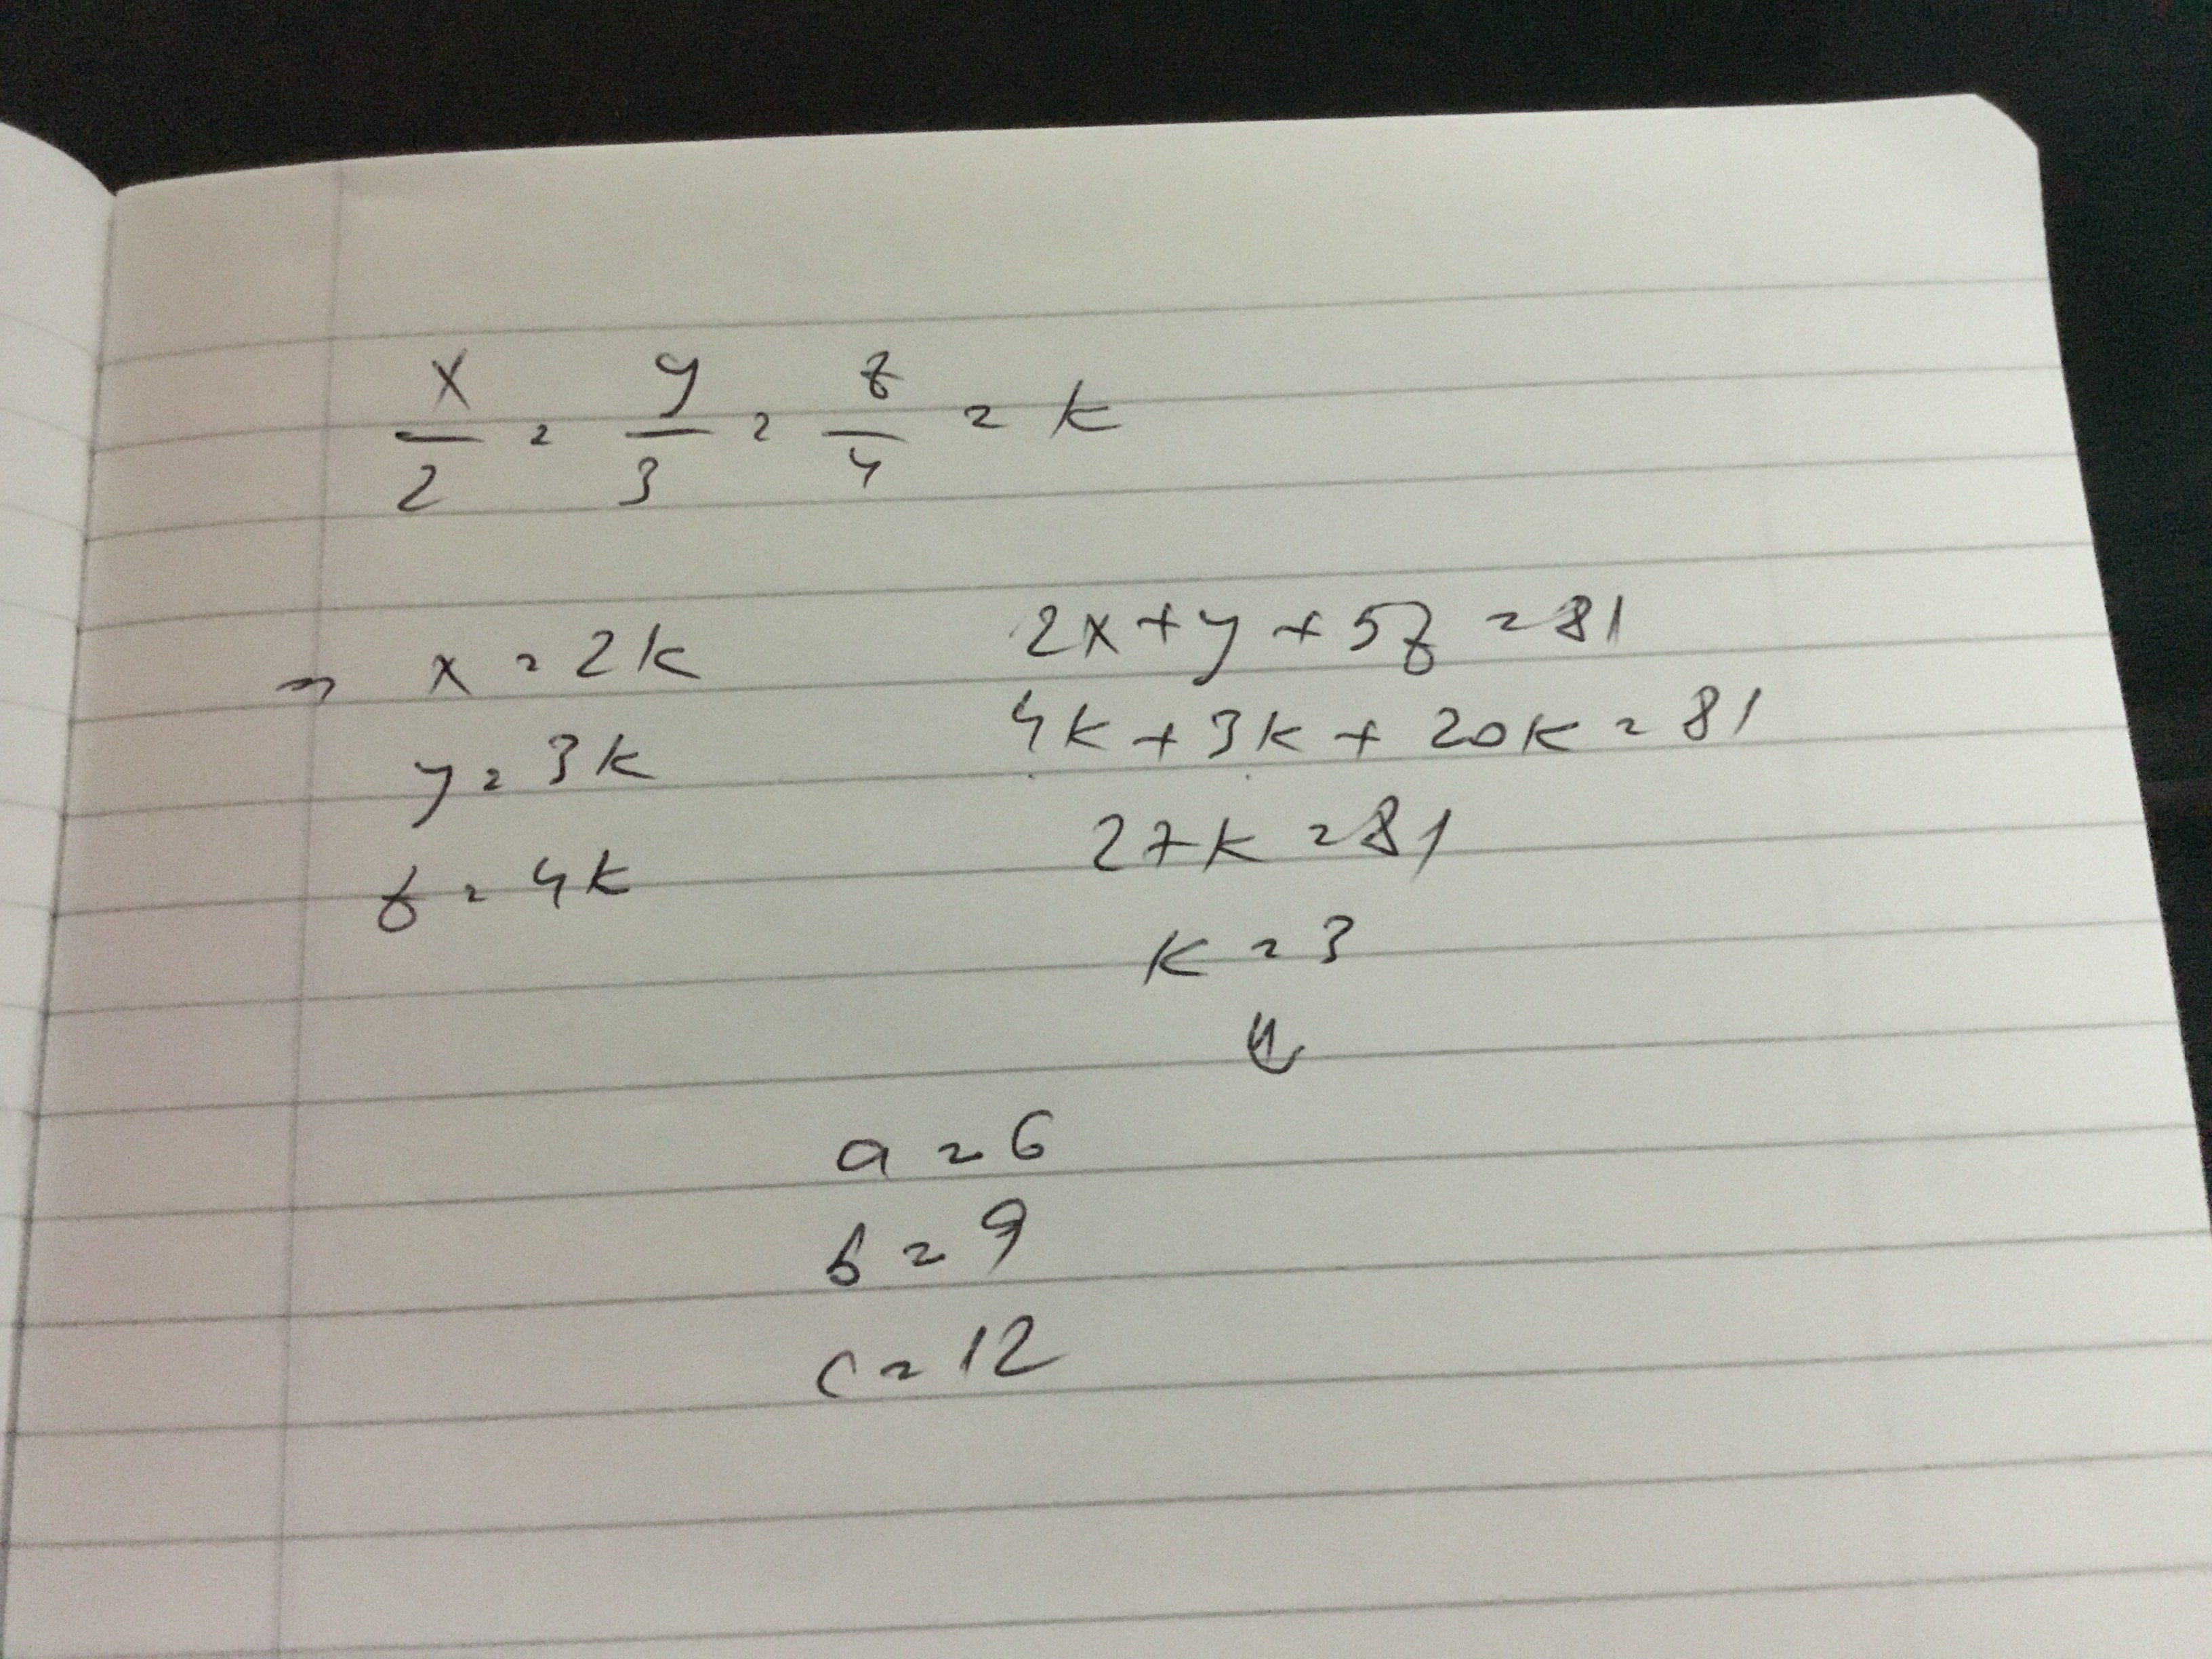 x/2 = y/3 = z/4 = k
⇒ x = 2k
y = 3k
z = 4k
2x + y + 5z = 81
4k + 3k + 20k = 81
27k = 81
k = 3
⇓
a = 6
b = 9
c = 12